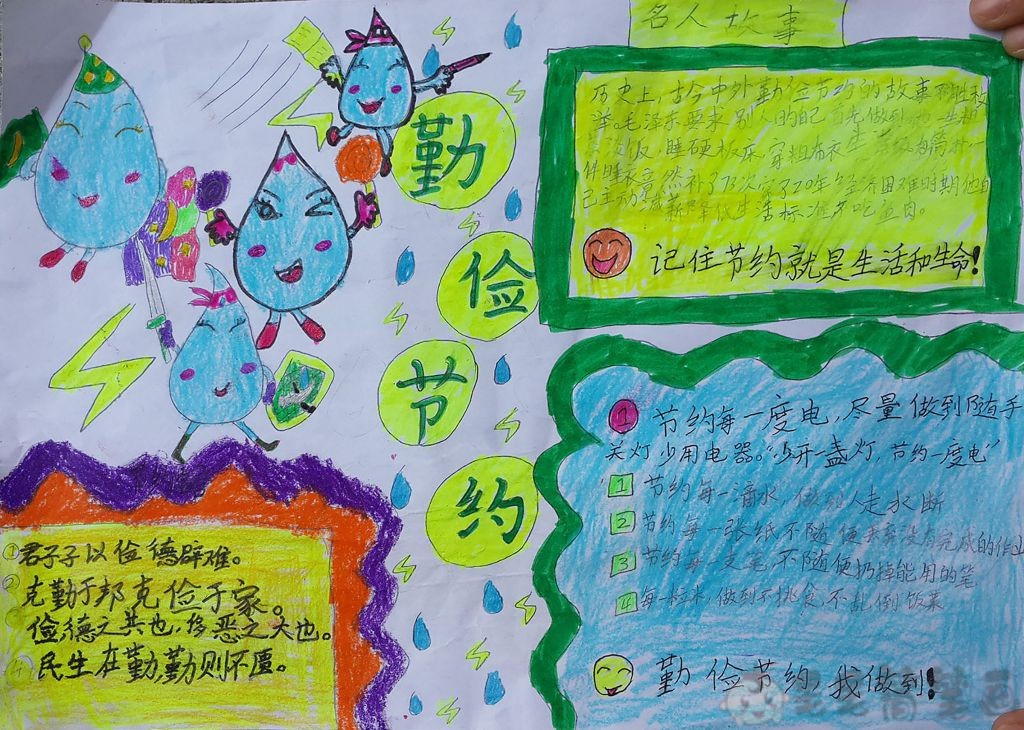 勤
俭
节
约
名人故事
历史上,古今中外勤俭节约的故事不胜枚
举。毛泽东要求别人的自己首先做到。一生粗
饭,睡硬板床,穿粗布衣,生活
件睡衣竟然补了73次,穿了20年。困难时期他自
己主动减薪降低生活标准不吃鱼肉。
记住节约就是生活和生命!
1 节约每一度电,尽量做到随手
关灯少用电器。“少开一盏灯,节约一度电”
1 节约每一滴水,做到人走水断
2 节约每一张纸不随便丢弃没有完成的作业
3 节约每一支笔,不随便扔掉能用的笔
4 每一粒米,做到不挑食,不乱倒饭菜
勤俭节约,我做到!
①君子子以俭德辟难。
②克勤于邦克俭于家。
俭德之共也,侈恶之大也。
4 民生在勤,勤则不匮。